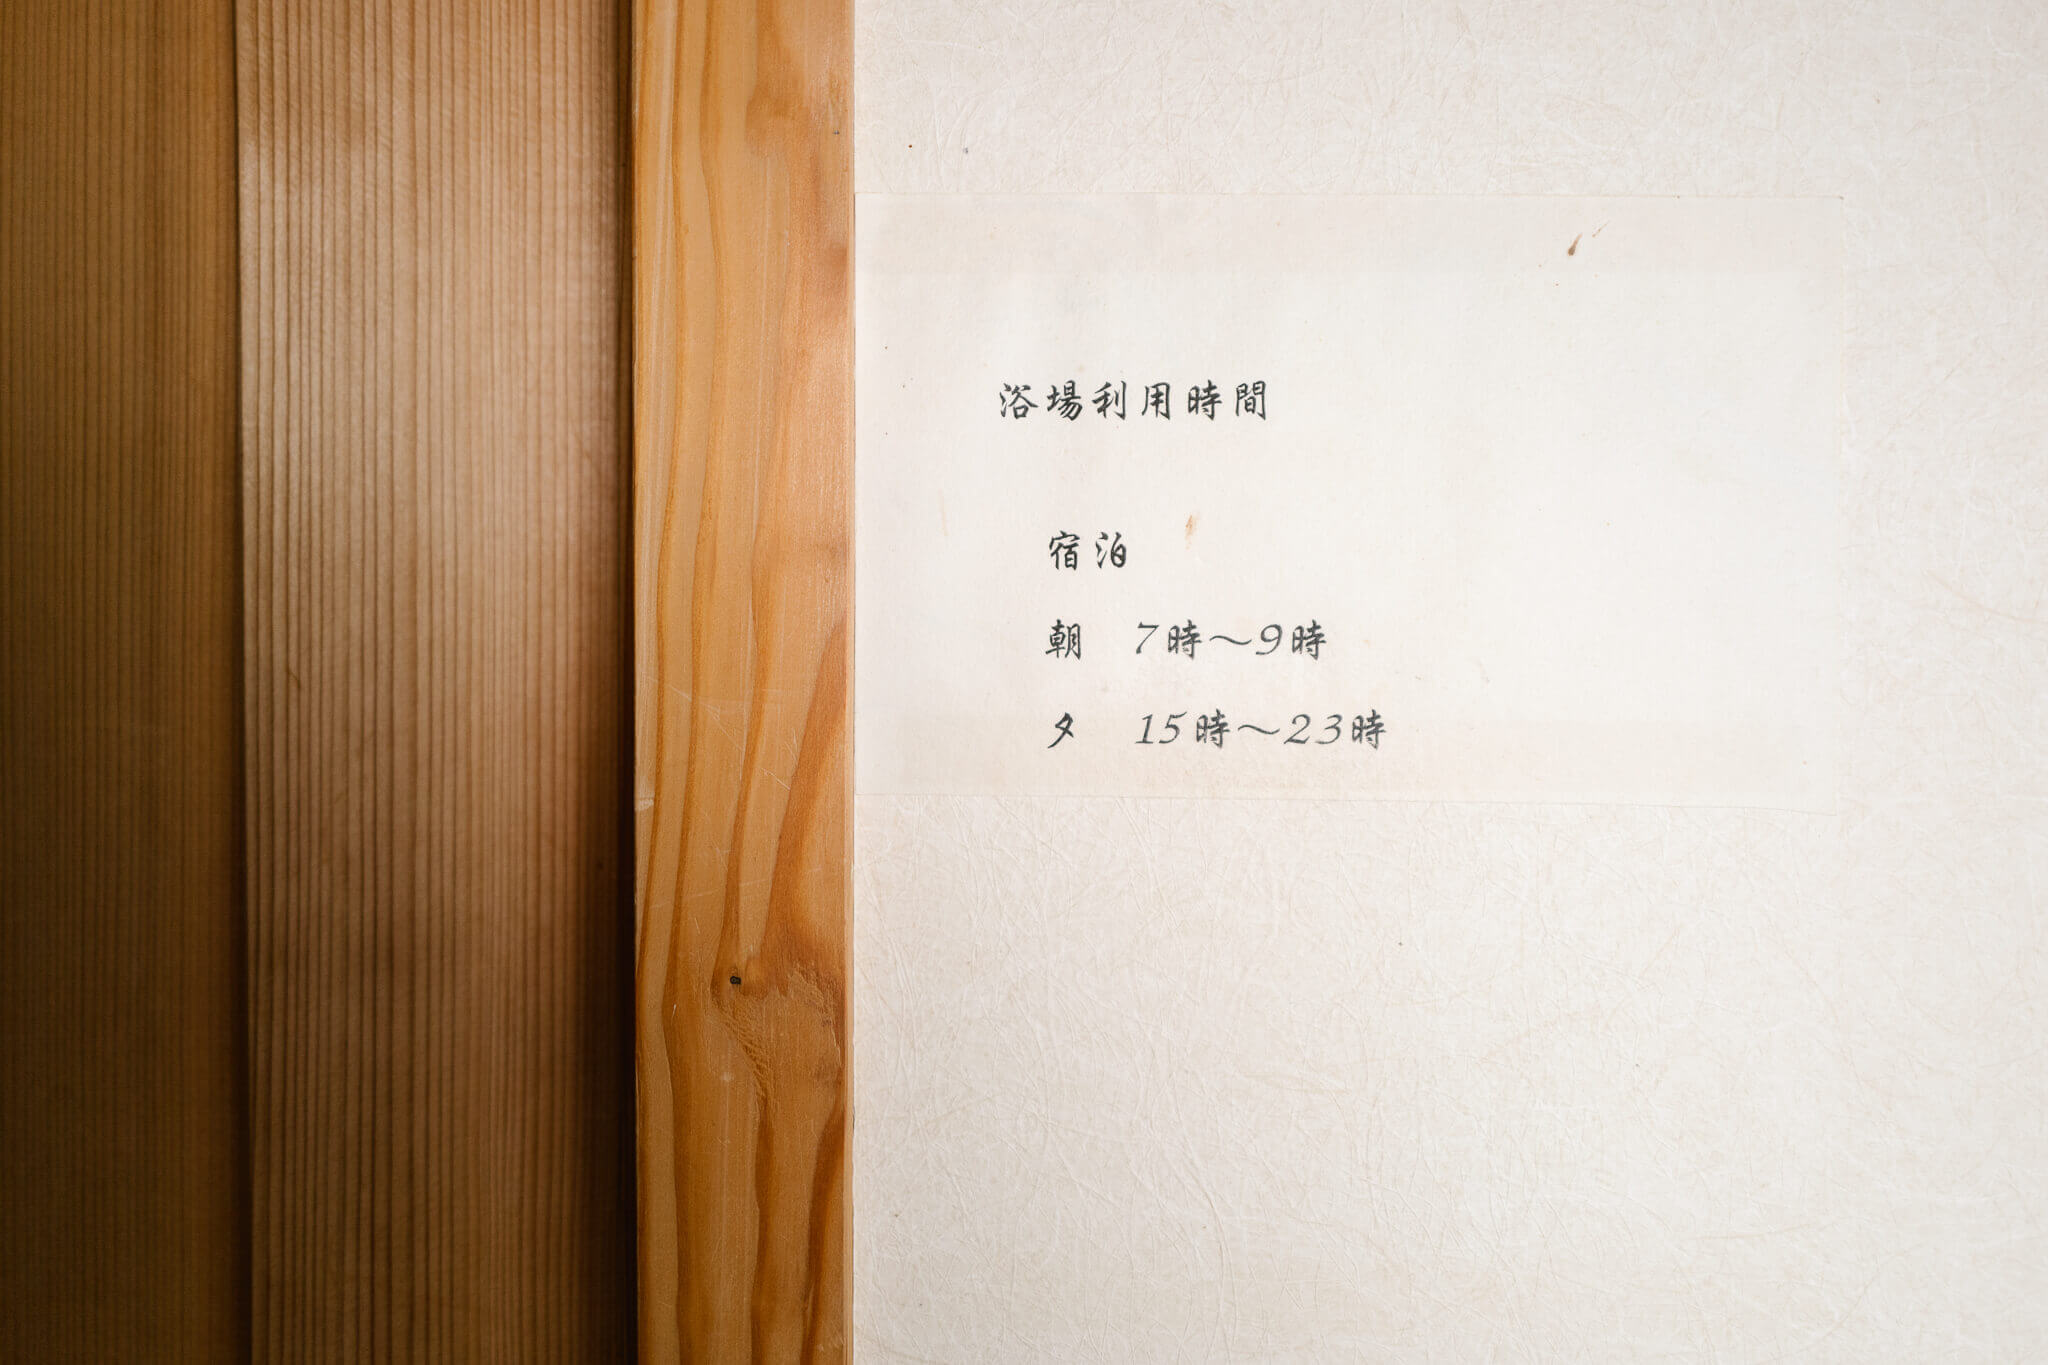 浴場利用時間
宿泊
朝　7時～9時
夕　15時～23時